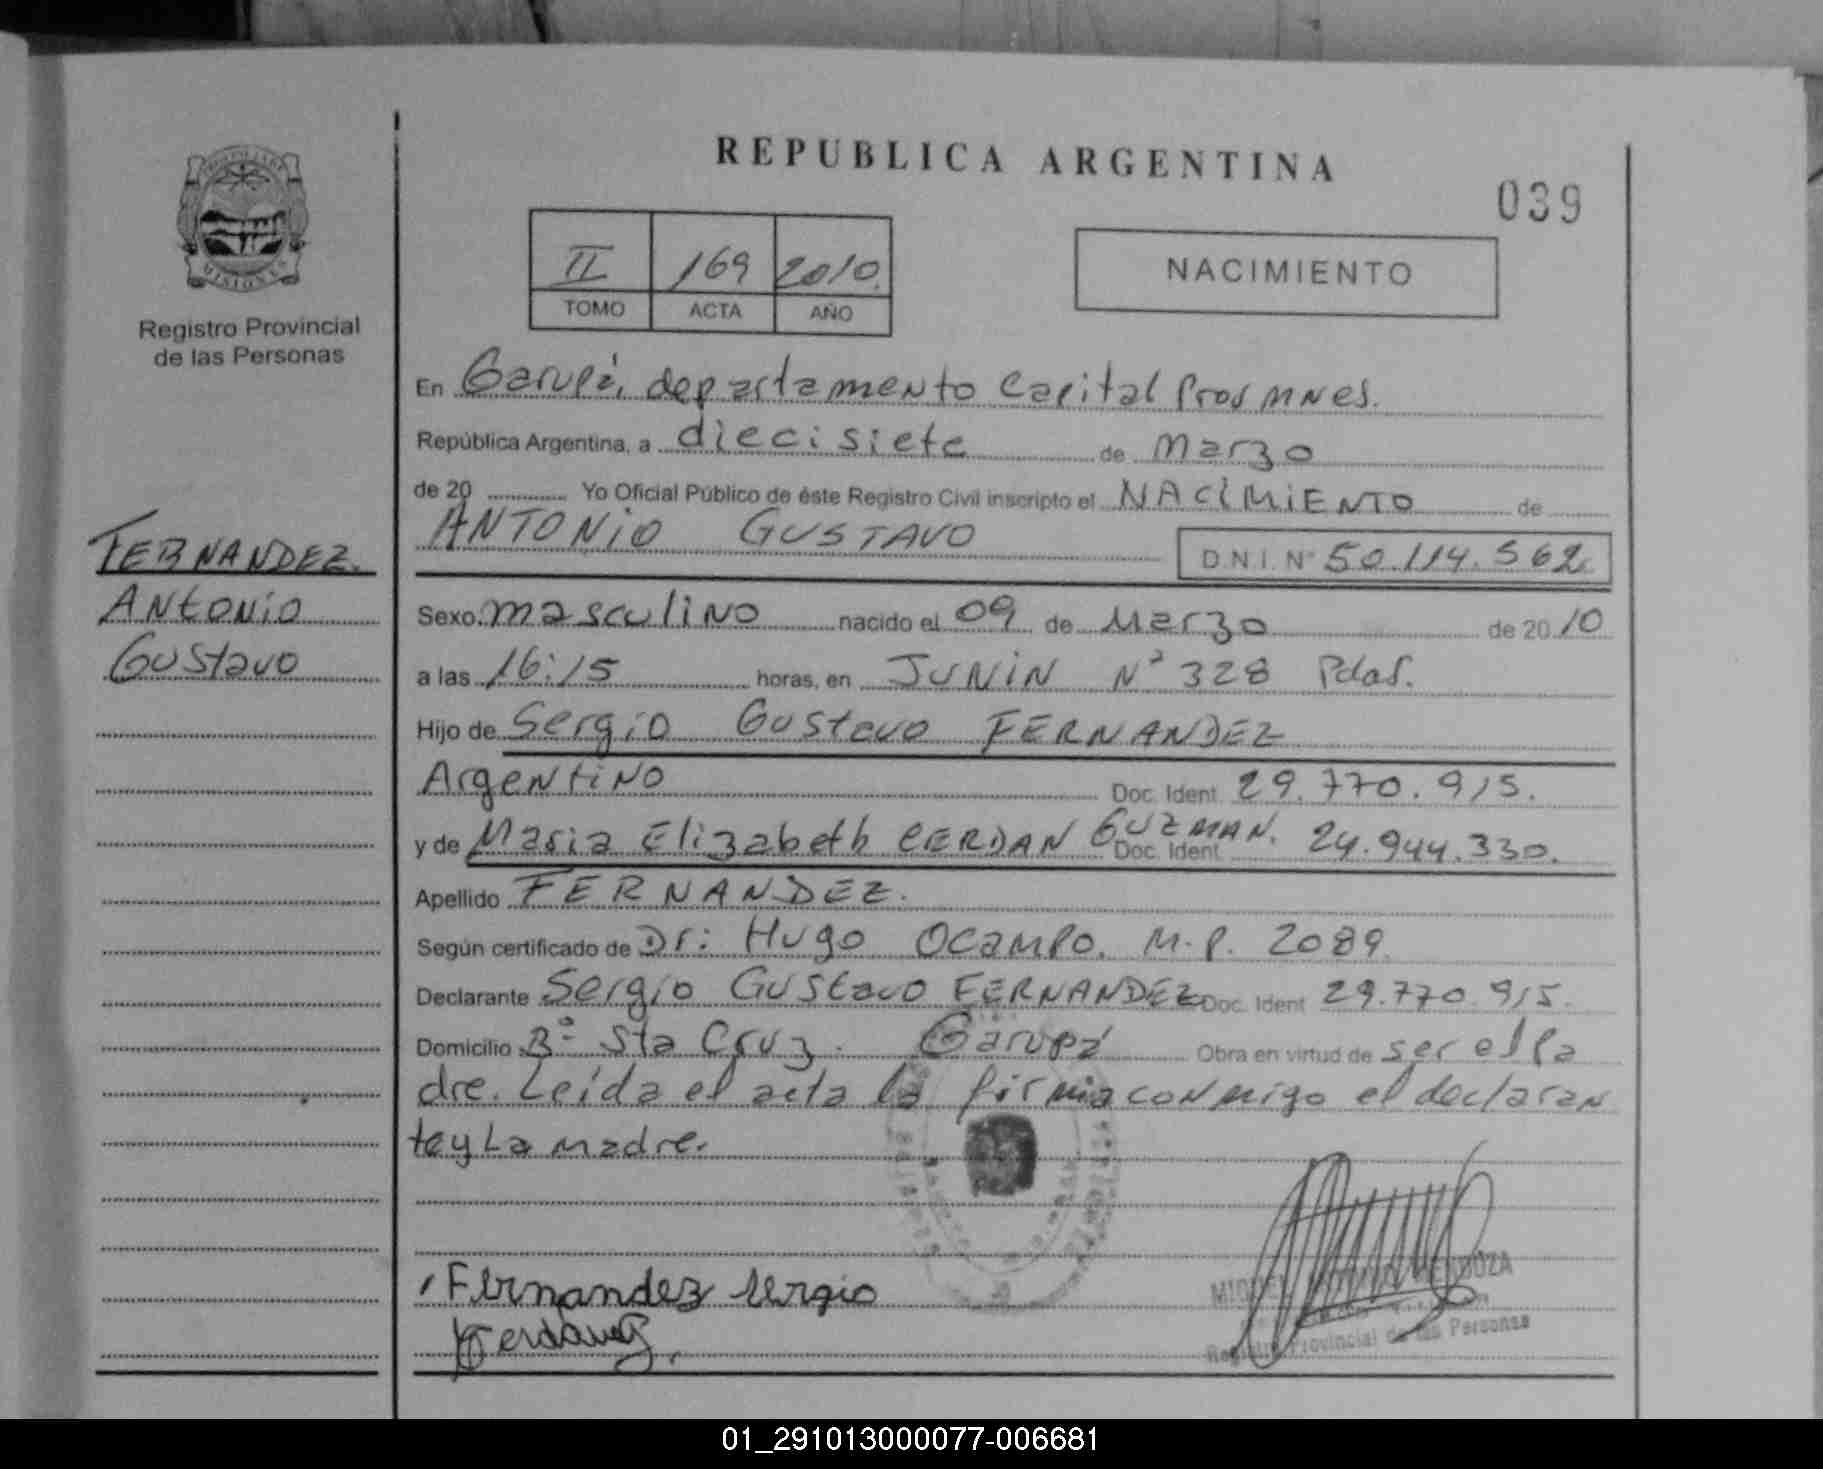 REPUBLICA ARGENTINA
039
MISIONES
Registro Provincial
de las Personas
II 169 2010.
TOMO ACTA AÑO
NACIMIENTO
En Garupá, departamento Capital Prov Mnes.
República Argentina, a diecisiete de Marzo
de 20 Yo Oficial Público de éste Registro Civil inscripto el NACIMIENTO de
ANTONIO GUSTAVO
D.N.I. N° 50.114.562.
FERNANDEZ.
Antonio
Gustavo
Sexo: masculino nacido el 09 de Marzo de 2010
a las 16:15 horas, en JUNIN N° 328 Pdas.
Hijo de Sergio Gustavo FERNANDEZ
Argentino Doc. Ident. 29.770.915.
y de Maria Elizabeth CERDAN GUZMAN. Doc. Ident. 24.944.330.
Apellido FERNANDEZ.
Según certificado de Dr: Hugo Ocampo. M.P. 2089.
Declarante Sergio Gustavo FERNANDEZ Doc. Ident. 29.770.915.
Domicilio B° Sta Cruz. Garupá Obra en virtud de ser el pa
dre. Leída el acta la firma conmigo el declaran
te y La madre.
Fernandez Sergio
MIGUEL MENDOZA
Registro Provincial de las Personas
01_291013000077-006681